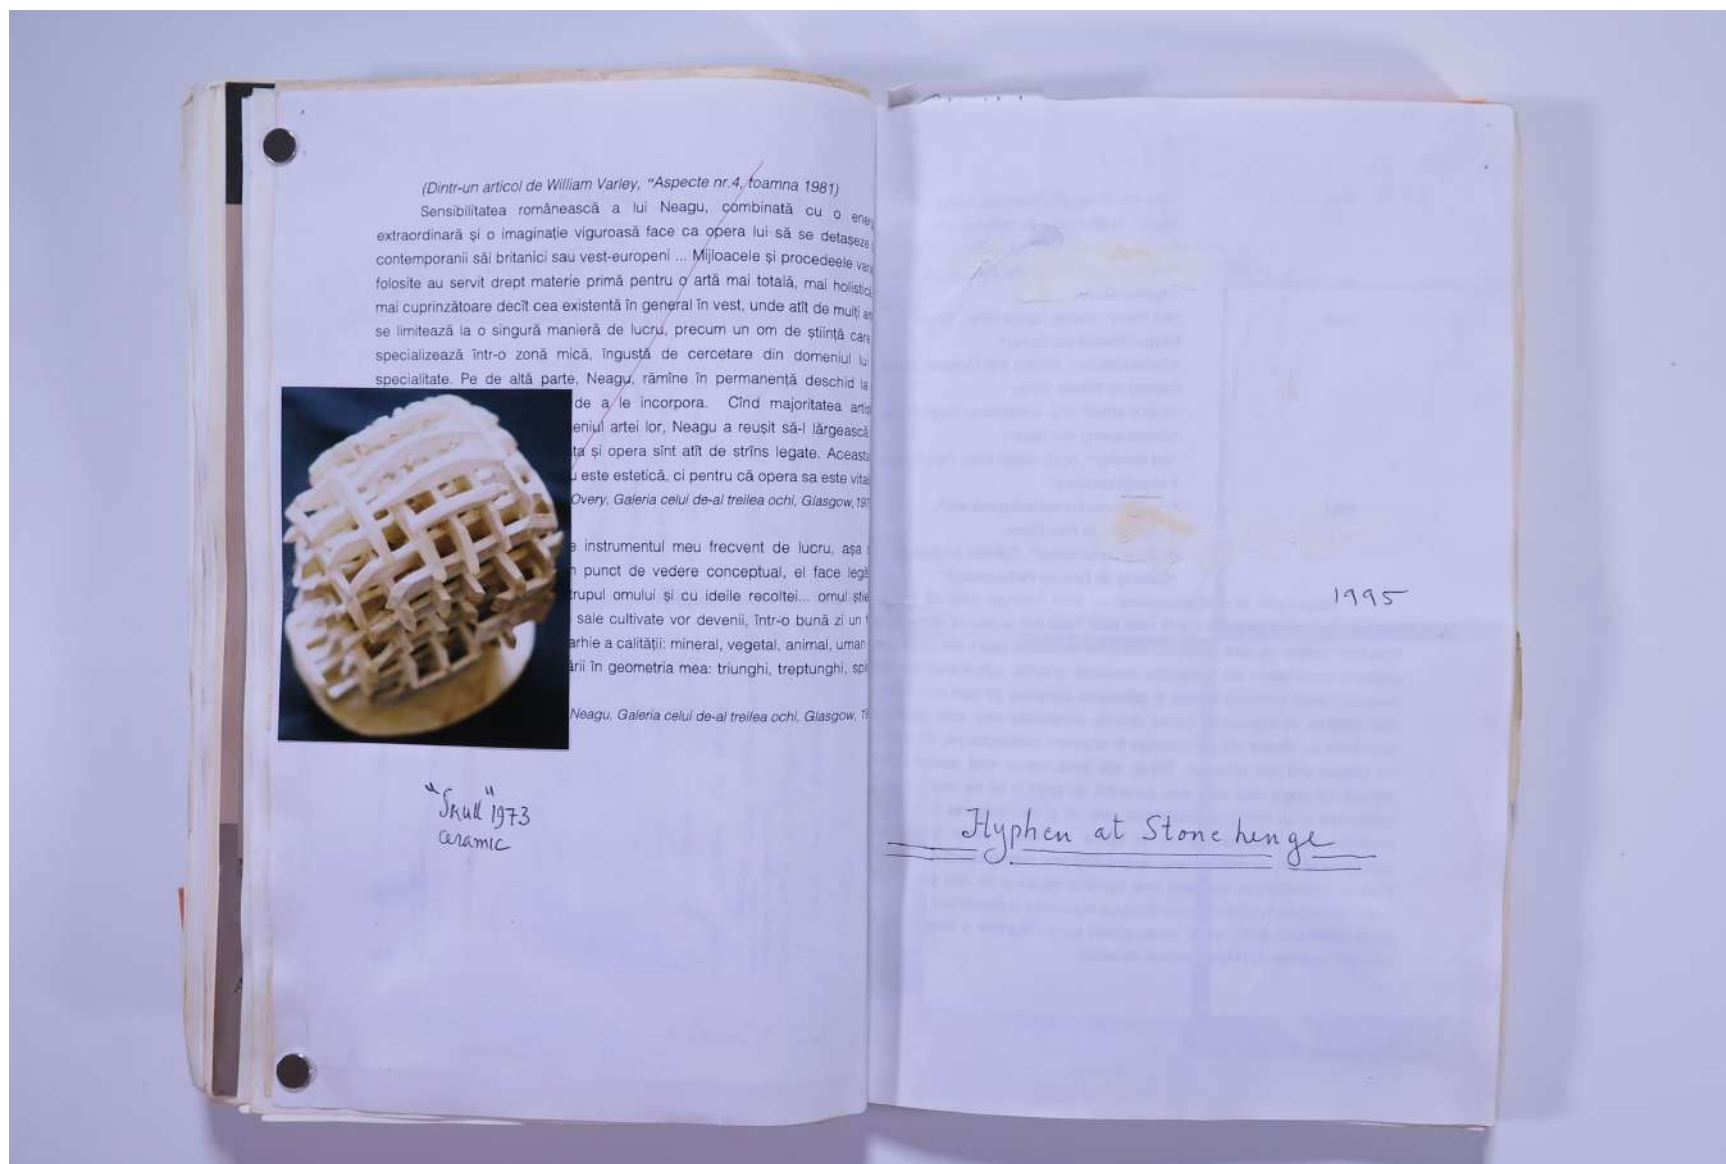 (Dintr-un articol de William Varley, "Aspecte nr.4, toamna 1981)
Sensibilitatea românească a lui Neagu, combinată cu o
extraordinară și o imaginație viguroasă face ca opera lui să se detașeze
contemporanii săi britanici sau vest-europeni ... Mijloacele și procedeele
folosite au servit drept materie primă pentru o artă mai totală, mai holistică
mai cuprinzătoare decît cea existentă în general în vest, unde atît de mulți
se limitează la o singură manieră de lucru, precum un om de știință care
specializează într-o zonă mică, îngustă de cercetare din domeniul lui
specialitate. Pe de altă parte, Neagu, rămîne în permanență deschid la
de a le incorpora. Cînd majoritatea
artei lor, Neagu a reușit să-l lărgească
și opera sînt atît de strîns legate. Aceasta
este estetică, ci pentru că opera sa este
Overy, Galeria celui de-al treilea ochi, Glasgow,
instrumentul meu frecvent de lucru, așa
punct de vedere conceptual, el face
trupul omului și cu ideile recoltei... omul știe
sale cultivate vor devenii, într-o bună zi un
a calității: mineral, vegetal, animal, uman
în geometria mea: triunghi, treptunghi,
Neagu, Galeria celui de-al treilea ochi, Glasgow,
"Skull" 1973
ceramic
1995
Hyphen at Stonehenge